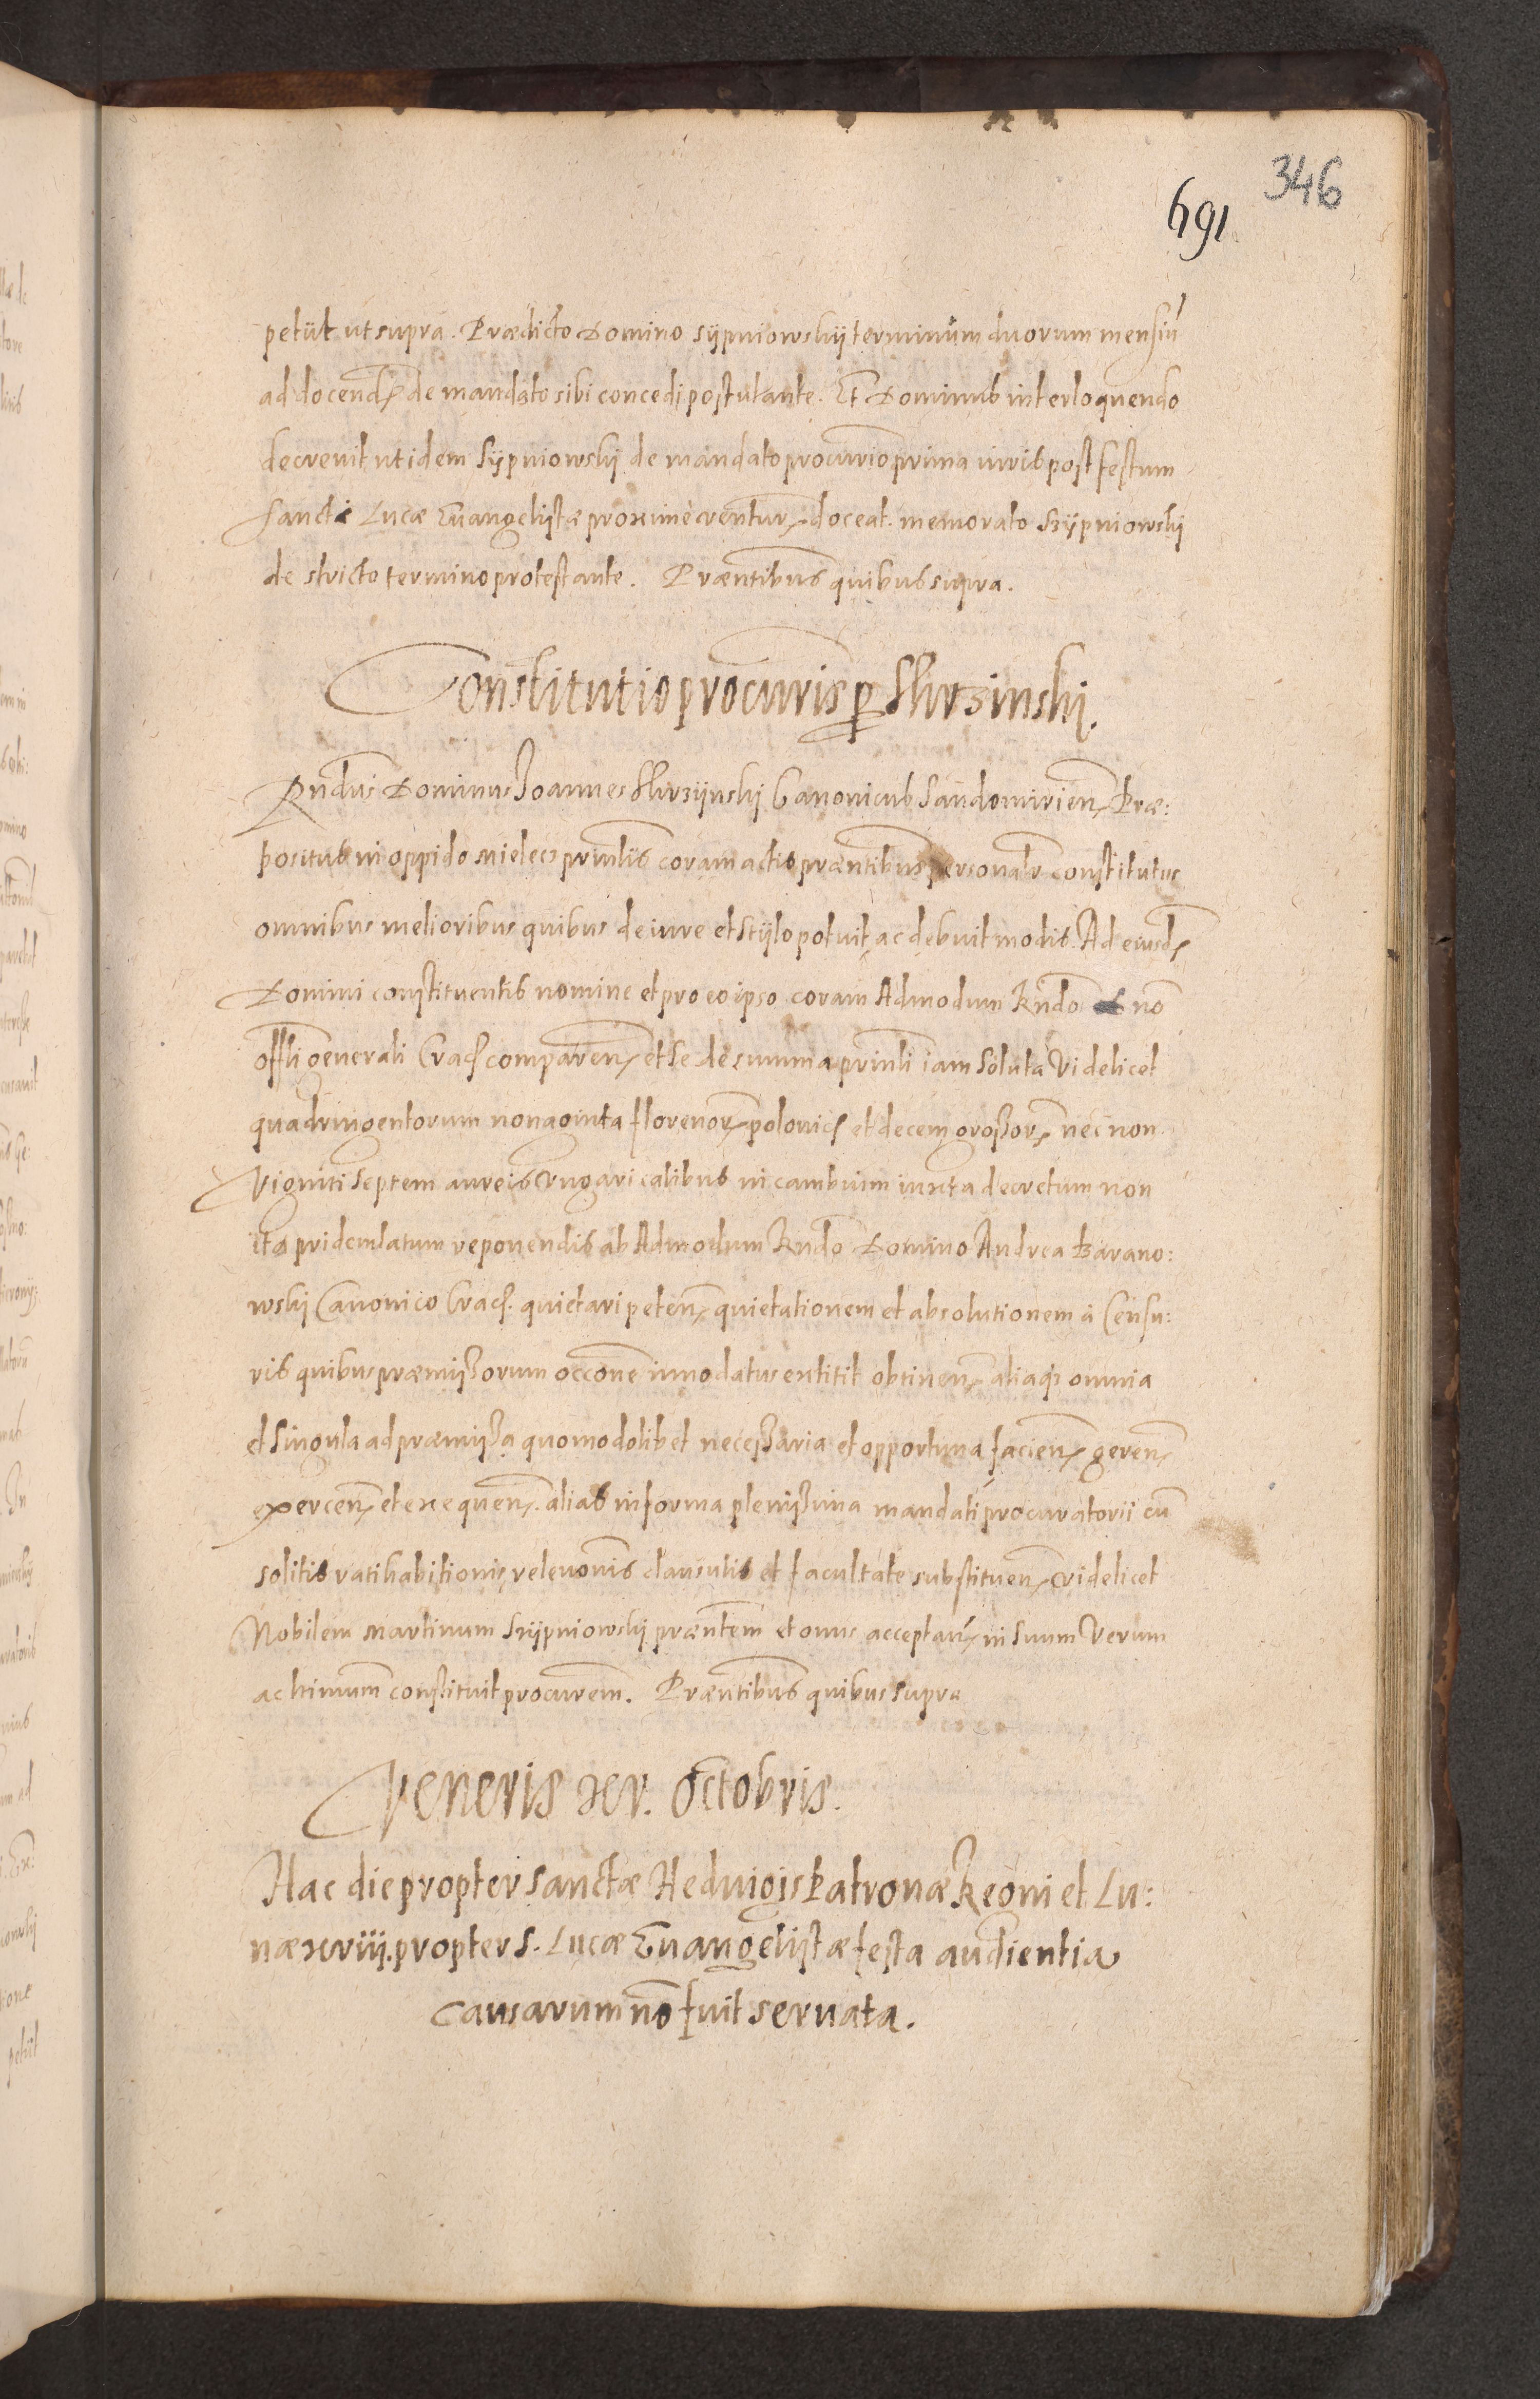 346
691
petiit ut supra. Prædicto Domino Sÿpniowskÿ terminum duorum mensiū
ad docend de mandato sibi concedi postulante. Et Dominus interloquendo
decrevit ut idem Sÿpniowski de mandato procurio prima iuris post festum
sancti Lucæ Euangelistæ proximè ventur doceat. memorato Srÿpniowski
de stricto termino protestante. Præntibus quibus supra.
Constitutio procuris per
Rndus Dominus Joannes Canonicus Sandomirien Præ:
positus in oppido Mielecz prinlis coram actis præntibus personalr constitutus
omnibus melioribus quibus de iure et stÿlo potuit ac debuit modis. Ad eiusd
Domini constituentis nomine et pro eo ipso coram Admodum Rndo Dno
offli generali Crac comparen et se de summa prinli iam soluta videlicet
quadringentorum nonaginta florenor polonic et decem großor nec non
Viginti septem aureis Vngaricalibus in cambium iuxta decretum non
ita pridem latum reponendis ab Admodum Rndo Domino Andrea Barano:
wski Canonico Crac. quietari peten quietationem et absolutionem à Censu:
ris quibus præmißorum occone innodatus extitit obtinen aliaq omnia
et singula ad præmißa quomodolibet neceßaria et opportuna facien geren
exercen et exequen. alias in forma plenißima mandati procuratorii cū
solitis ratihabitionis relevonis clausulis et facultate substituen videlicet
Nobilem Martinum Srÿpniowski præntem et onus acceptan in suum verum
ac ltimum constituit procurem. Præntibus quibus supra
Veneris xv. Octobris.
Hac die propter Sanctæ Heduigis Patronæ Regni et Lu:
næ xviii. propter S. Lucæ Euangelistæ festa audientia
causarum nō fuit seruata.